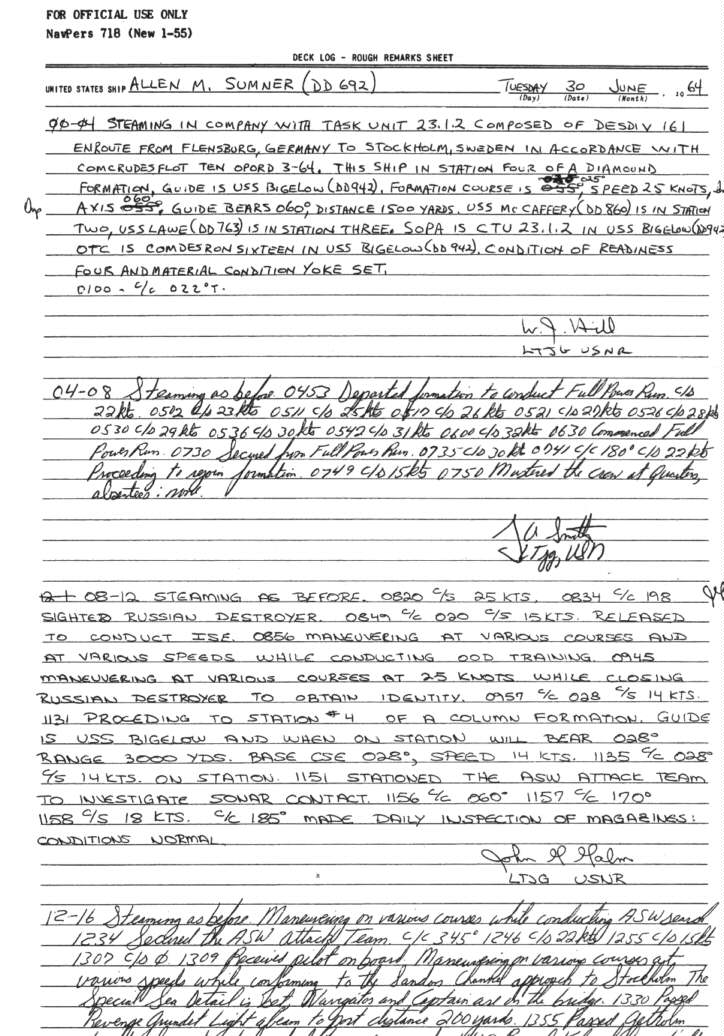 FOR OFFICIAL USE ONLY
NavPers 718 (New 1-55)
DECK LOG - ROUGH REMARKS SHEET
UNITED STATES SHIP ALLEN M. SUMNER (DD 692) TUESDAY 30 JUNE , 19 64
(Day) (Date) (Month)
00-04 STEAMING IN COMPANY WITH TASK UNIT 23.1.2 COMPOSED OF DESDIV 161
ENROUTE FROM FLENSBURG, GERMANY TO STOCKHOLM, SWEDEN IN ACCORDANCE WITH
COMCRUDESFLOT TEN OPORD 3-64. THIS SHIP IN STATION FOUR OF A DIAMOUND
025°
FORMATION, GUIDE IS USS BIGELOW (DD942), FORMATION COURSE IS 055°, SPEED 25 KNOTS,
060°
AXIS 055°, GUIDE BEARS 060°, DISTANCE 1500 YARDS. USS McCAFFERY (DD 860) IS IN STATION
TWO, USS LAWE (DD 763) IS IN STATION THREE. SOPA IS CTU 23.1.2 IN USS BIGELOW (DD942
OTC IS COMDESRON SIXTEEN IN USS BIGELOW (DD 942). CONDITION OF READINESS
FOUR AND MATERIAL CONDITION YOKE SET.
0100 - C/C 022°T.
W.J. Hill
LTJG USNR
04-08 Steaming as before 0453 Departed formation to conduct Full Power Run. C/S
22kts. 0502 C/S 23kts 0511 C/S 25kts 0517 C/S 26kts 0521 C/S 27kts 0526 C/S 28kts
0530 C/S 29kts 0536 C/S 30kts 0542 C/S 31kts 0600 C/S 32kts 0630 Commenced Full
Power Run. 0730 Secured from Full Power Run. 0735 C/S 30kts 0741 C/C 180° C/S 22kts
Proceeding to rejoin formation. 0749 C/S 15kts 0750 Mustered the crew at Quarters,
absentees: none.
J A Smith
LTjg, USN
08-12 STEAMING AS BEFORE. 0820 C/S 25 KTS. 0834 C/C 198
SIGHTED RUSSIAN DESTROYER. 0849 C/C 020 C/S 15 KTS. RELEASED
TO CONDUCT ISE. 0856 MANEUVERING AT VARIOUS COURSES AND
AT VARIOUS SPEEDS WHILE CONDUCTING OOD TRAINING. 0945
MANEUVERING AT VARIOUS COURSES AT 25 KNOTS WHILE CLOSING
RUSSIAN DESTROYER TO OBTAIN IDENTITY. 0957 C/C 028 C/S 14 KTS.
1131 PROCEDING TO STATION #4 OF A COLUMN FORMATION. GUIDE
IS USS BIGELOW AND WHEN ON STATION WILL BEAR 028°
RANGE 3000 YDS. BASE CSE 028°, SPEED 14 KTS. 1135 C/C 028°
C/S 14 KTS. ON STATION. 1151 STATIONED THE ASW ATTACK TEAM
TO INVESTIGATE SONAR CONTACT. 1156 C/C 060° 1157 C/C 170°
1158 C/S 18 KTS. C/C 185° MADE DAILY INSPECTION OF MAGAZINES:
CONDITIONS NORMAL
John G Malm
LTJG USNR
12-16 Steaming as before Maneuvering on various courses while conducting ASW search
1234 Secured the ASW Attack Team. C/C 345° 1246 C/S 22kts 1255 C/S 15kts
1307 C/S 0 1309 Received pilot on board, Maneuvering on various courses at
various speeds while conforming to the Sandon Channel approach to Stockholm The
Special Sea Detail is set, Navigator and Captain are on the bridge. 1330 Passed
Revenge Grundet Light abeam to port distance 200 yards. 1355 Passed